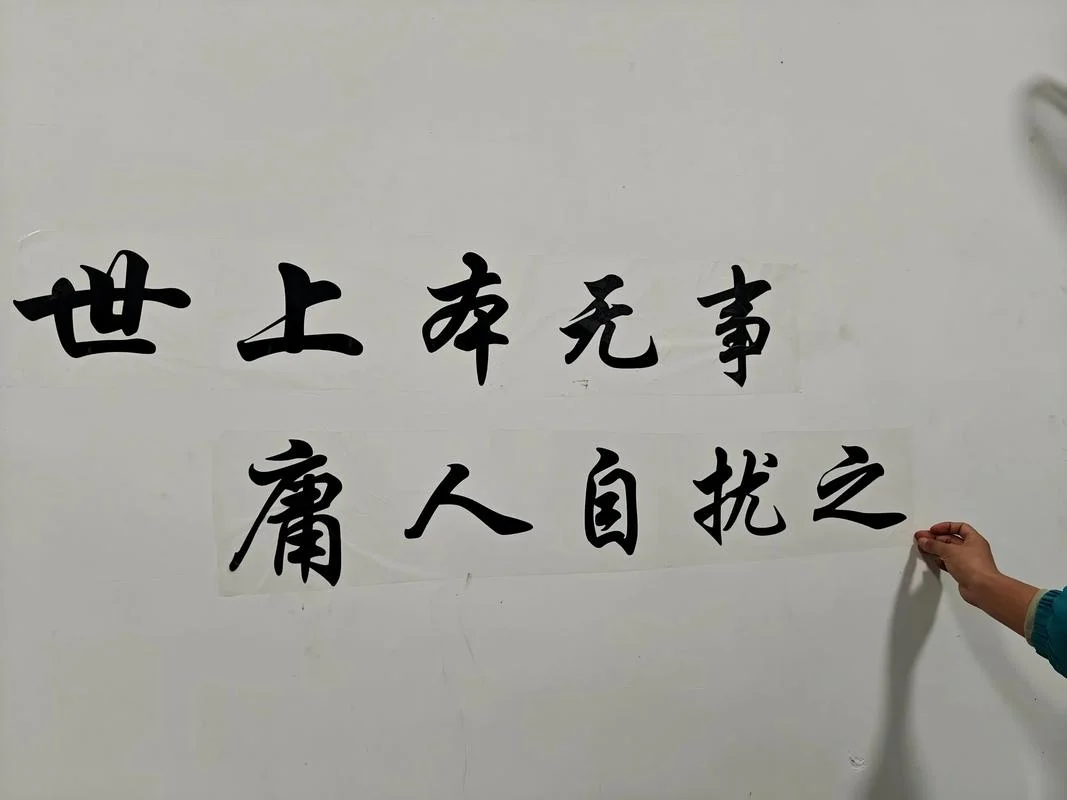 世上本无事
庸人自扰之